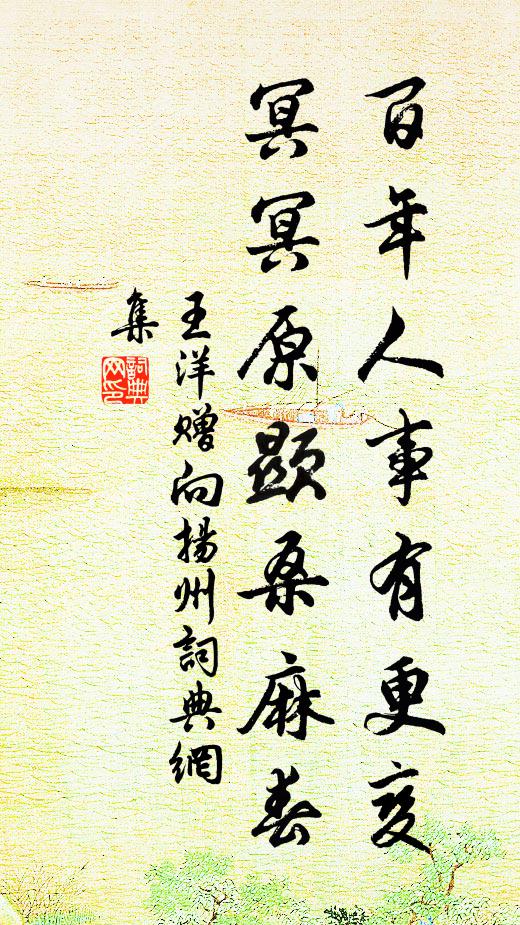 百年人事有更变
冥冥原顕桑麻春
王洋赠向揚州詞典網
集
詞典网印